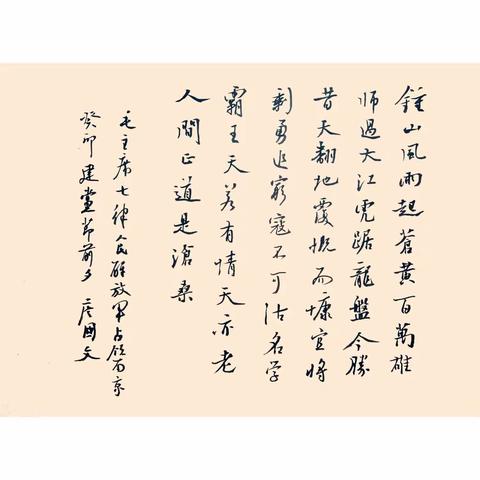 鍾山風雨起蒼黃百萬雄
師過大江虎踞龍盤今勝
昔天翻地覆慨而慷宜將
剩勇追窮寇不可沽名学
霸王天若有情天亦老
人間正道是滄桑
毛主席七律人民解放軍占领南京
癸卯建黨節前夕 彦國文